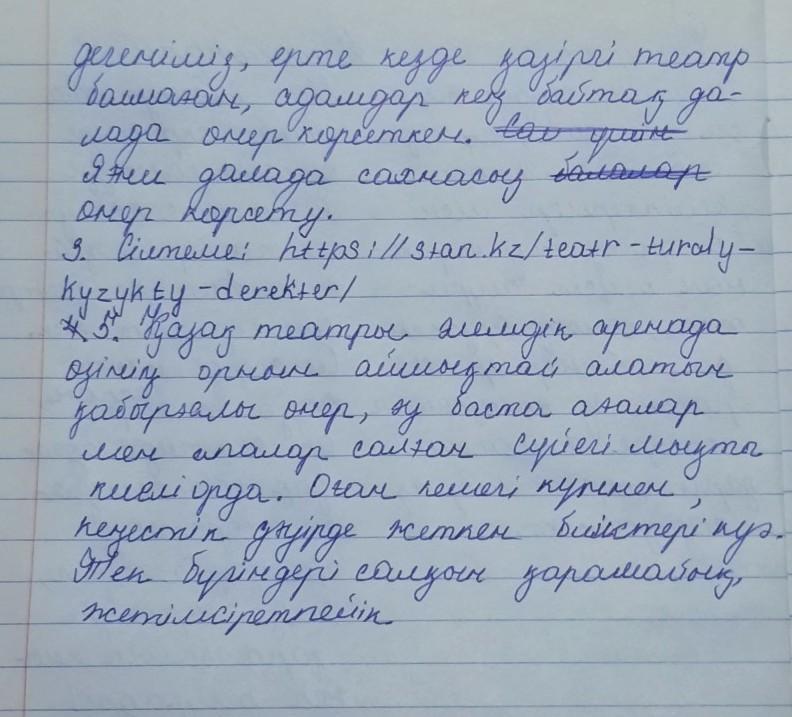 дегеніміз, ерте кезде қазіргі театр
болмаған, адамдар кең байтақ да-
лада өнер көрсеткен. Сол үшін
Яғни далада сахнасыз балалар
өнер көрсету.
3. Сілтеме: https://stan.kz/teatr-turaly-
kyzykty-derekter/
5. "Қазақ театры әлемдік аренада
өзінің орнын айшықтай алатын
қабырғалы өнер, әу баста ағалар
мен апалар салған сүйегі мықты
киелі орда. Оған кешегі күнмен,
кеңестік дәуірде жеткен биіктері куә.
Тек бүгіндері салқын қарамайық,
жетімсіретпейік